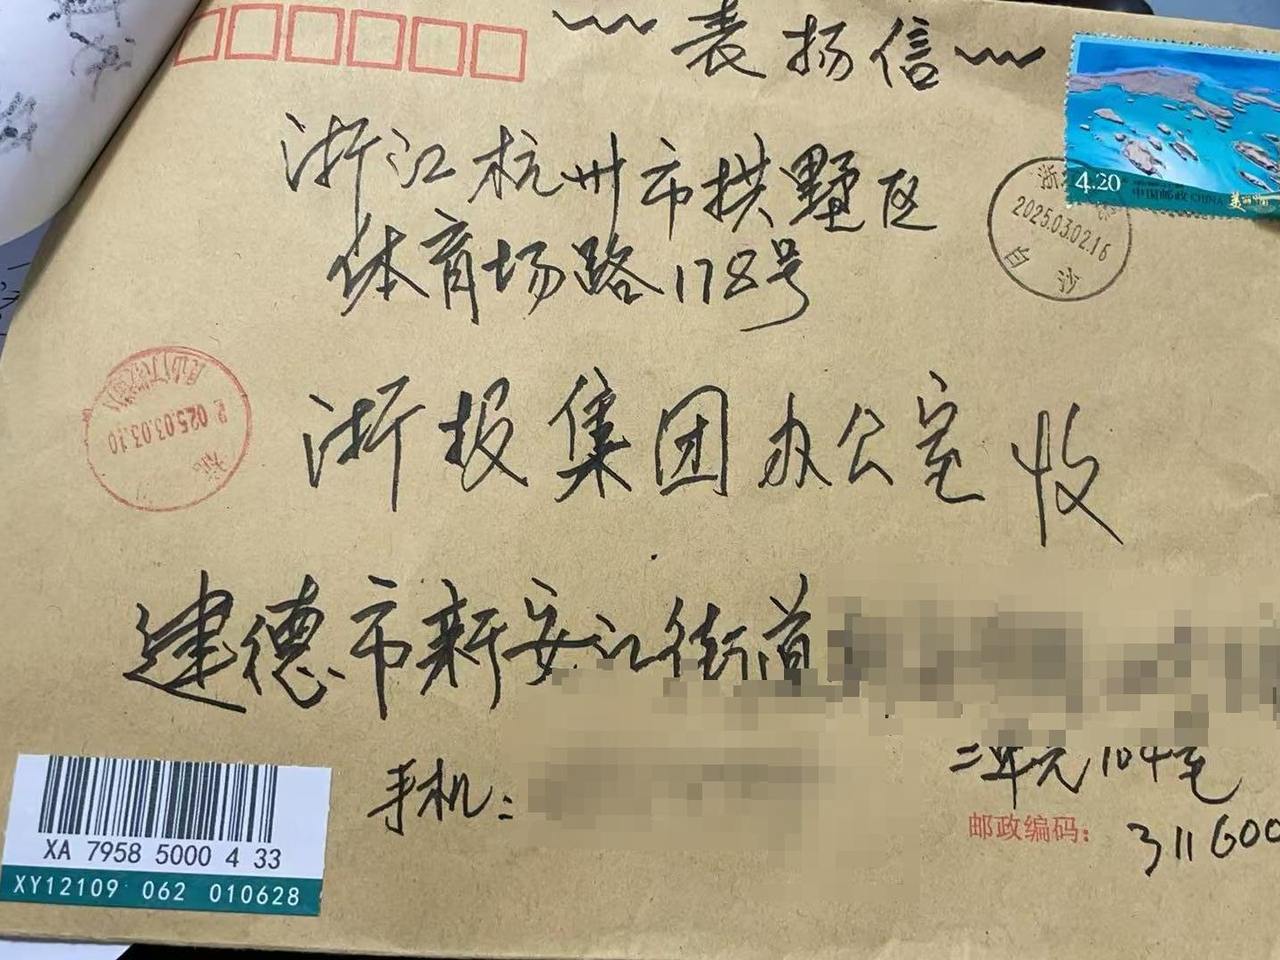 表扬信
4.20
中国邮政 CHINA
浙江杭州市拱墅区
2025.03.02.16
白沙
体育场路178号
025.03.03.10
杭
浙报集团办公室 收
建德市新安江街道
二单元104室
手机:
邮政编码: 311600
XA 7958 5000 4 33
XY12109 062 010628